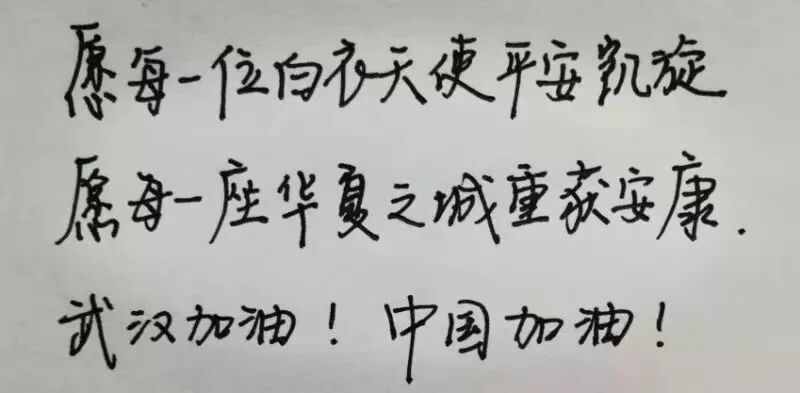 愿每一位白衣天使平安凯旋
愿每一座华夏之城重获安康.
武汉加油！中国加油！